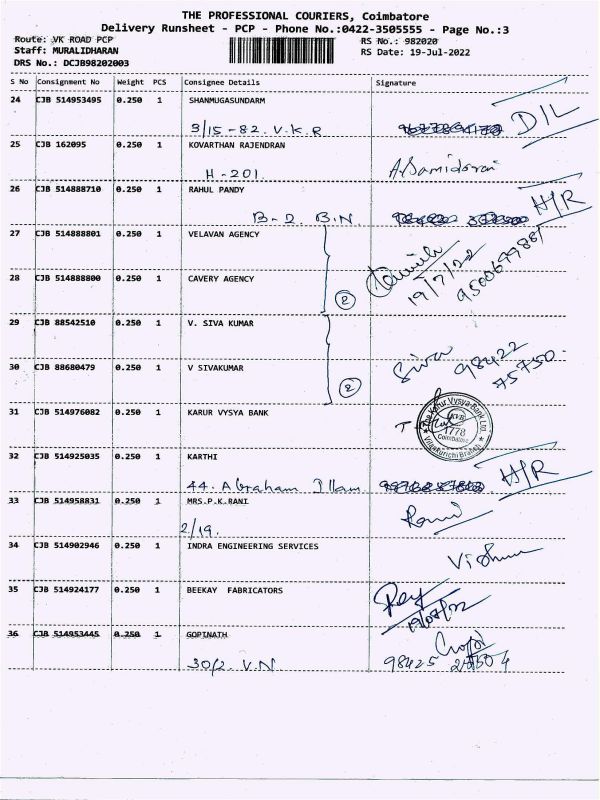 THE PROFESSIONAL COURIERS, Coimbatore
Delivery Runsheet - PCP - Phone No.:0422-3505555 - Page No.:3
Route: VK ROAD PCP
RS No.: 982020
Staff: MURALIDHARAN
RS Date: 19-Jul-2022
DRS No.: DCJB98202003
S No Consignment No Weight PCS Consignee Details Signature
24 CJB 514953495 0.250 1 SHANMUGASUNDARM
3/15-82. V.K.R D/L
25 CJB 162095 0.250 1 KOVARTHAN RAJENDRAN
H-201.
26 CJB 514888710 0.250 1 RAHUL PANDY
B-2. B.N. H/R
27 CJB 514888801 0.250 1 VELAVAN AGENCY
19/7/22
28 CJB 514888800 0.250 1 CAVERY AGENCY
2
29 CJB 88542510 0.250 1 V. SIVA KUMAR
Siva 98422 75750
30 CJB 88680479 0.250 1 V SIVAKUMAR
2
31 CJB 514976082 0.250 1 KARUR VYSYA BANK
The Karur Vysya Bank Ltd.
Coimbatore
32 CJB 514925035 0.250 1 KARTHI
44. Abraham Illam H/R
33 CJB 514958831 0.250 1 MRS.P.K.RANI
2/19. Rani
34 CJB 514902946 0.250 1 INDRA ENGINEERING SERVICES
35 CJB 514924177 0.250 1 BEEKAY FABRICATORS
19/07/22
36 CJB 514953445 0.250 1 GOPINATH
30/2. V.N 98425